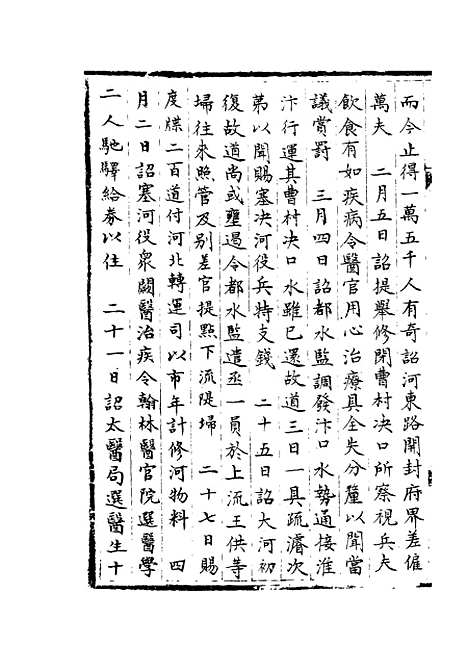 而今止得一萬五千人有奇詔河東路開封府界差僱
萬夫　二月五日詔提舉修閉曹村决口所察視兵夫
飲食有如疾病令醫官用心治療具全失分釐以聞當
議賞罰　三月四日詔都水監調發汴口水勢通接淮
汴行運其曹村决口水雖已還故道三日一具疏濬次
第以聞賜塞决河役兵特支錢　二十五日詔大河初
復故道尚或壅遏令都水監遣丞一員於上流王供等
埽往來照管及别差官提點下流隄埽　二十七日賜
度牒二百道付河北轉運司以市年計修河物料　四
月二日詔塞河役衆闕醫治疾令翰林醫官院選醫學
二人馳驛給券以往　二十一日詔太醫局選醫生十